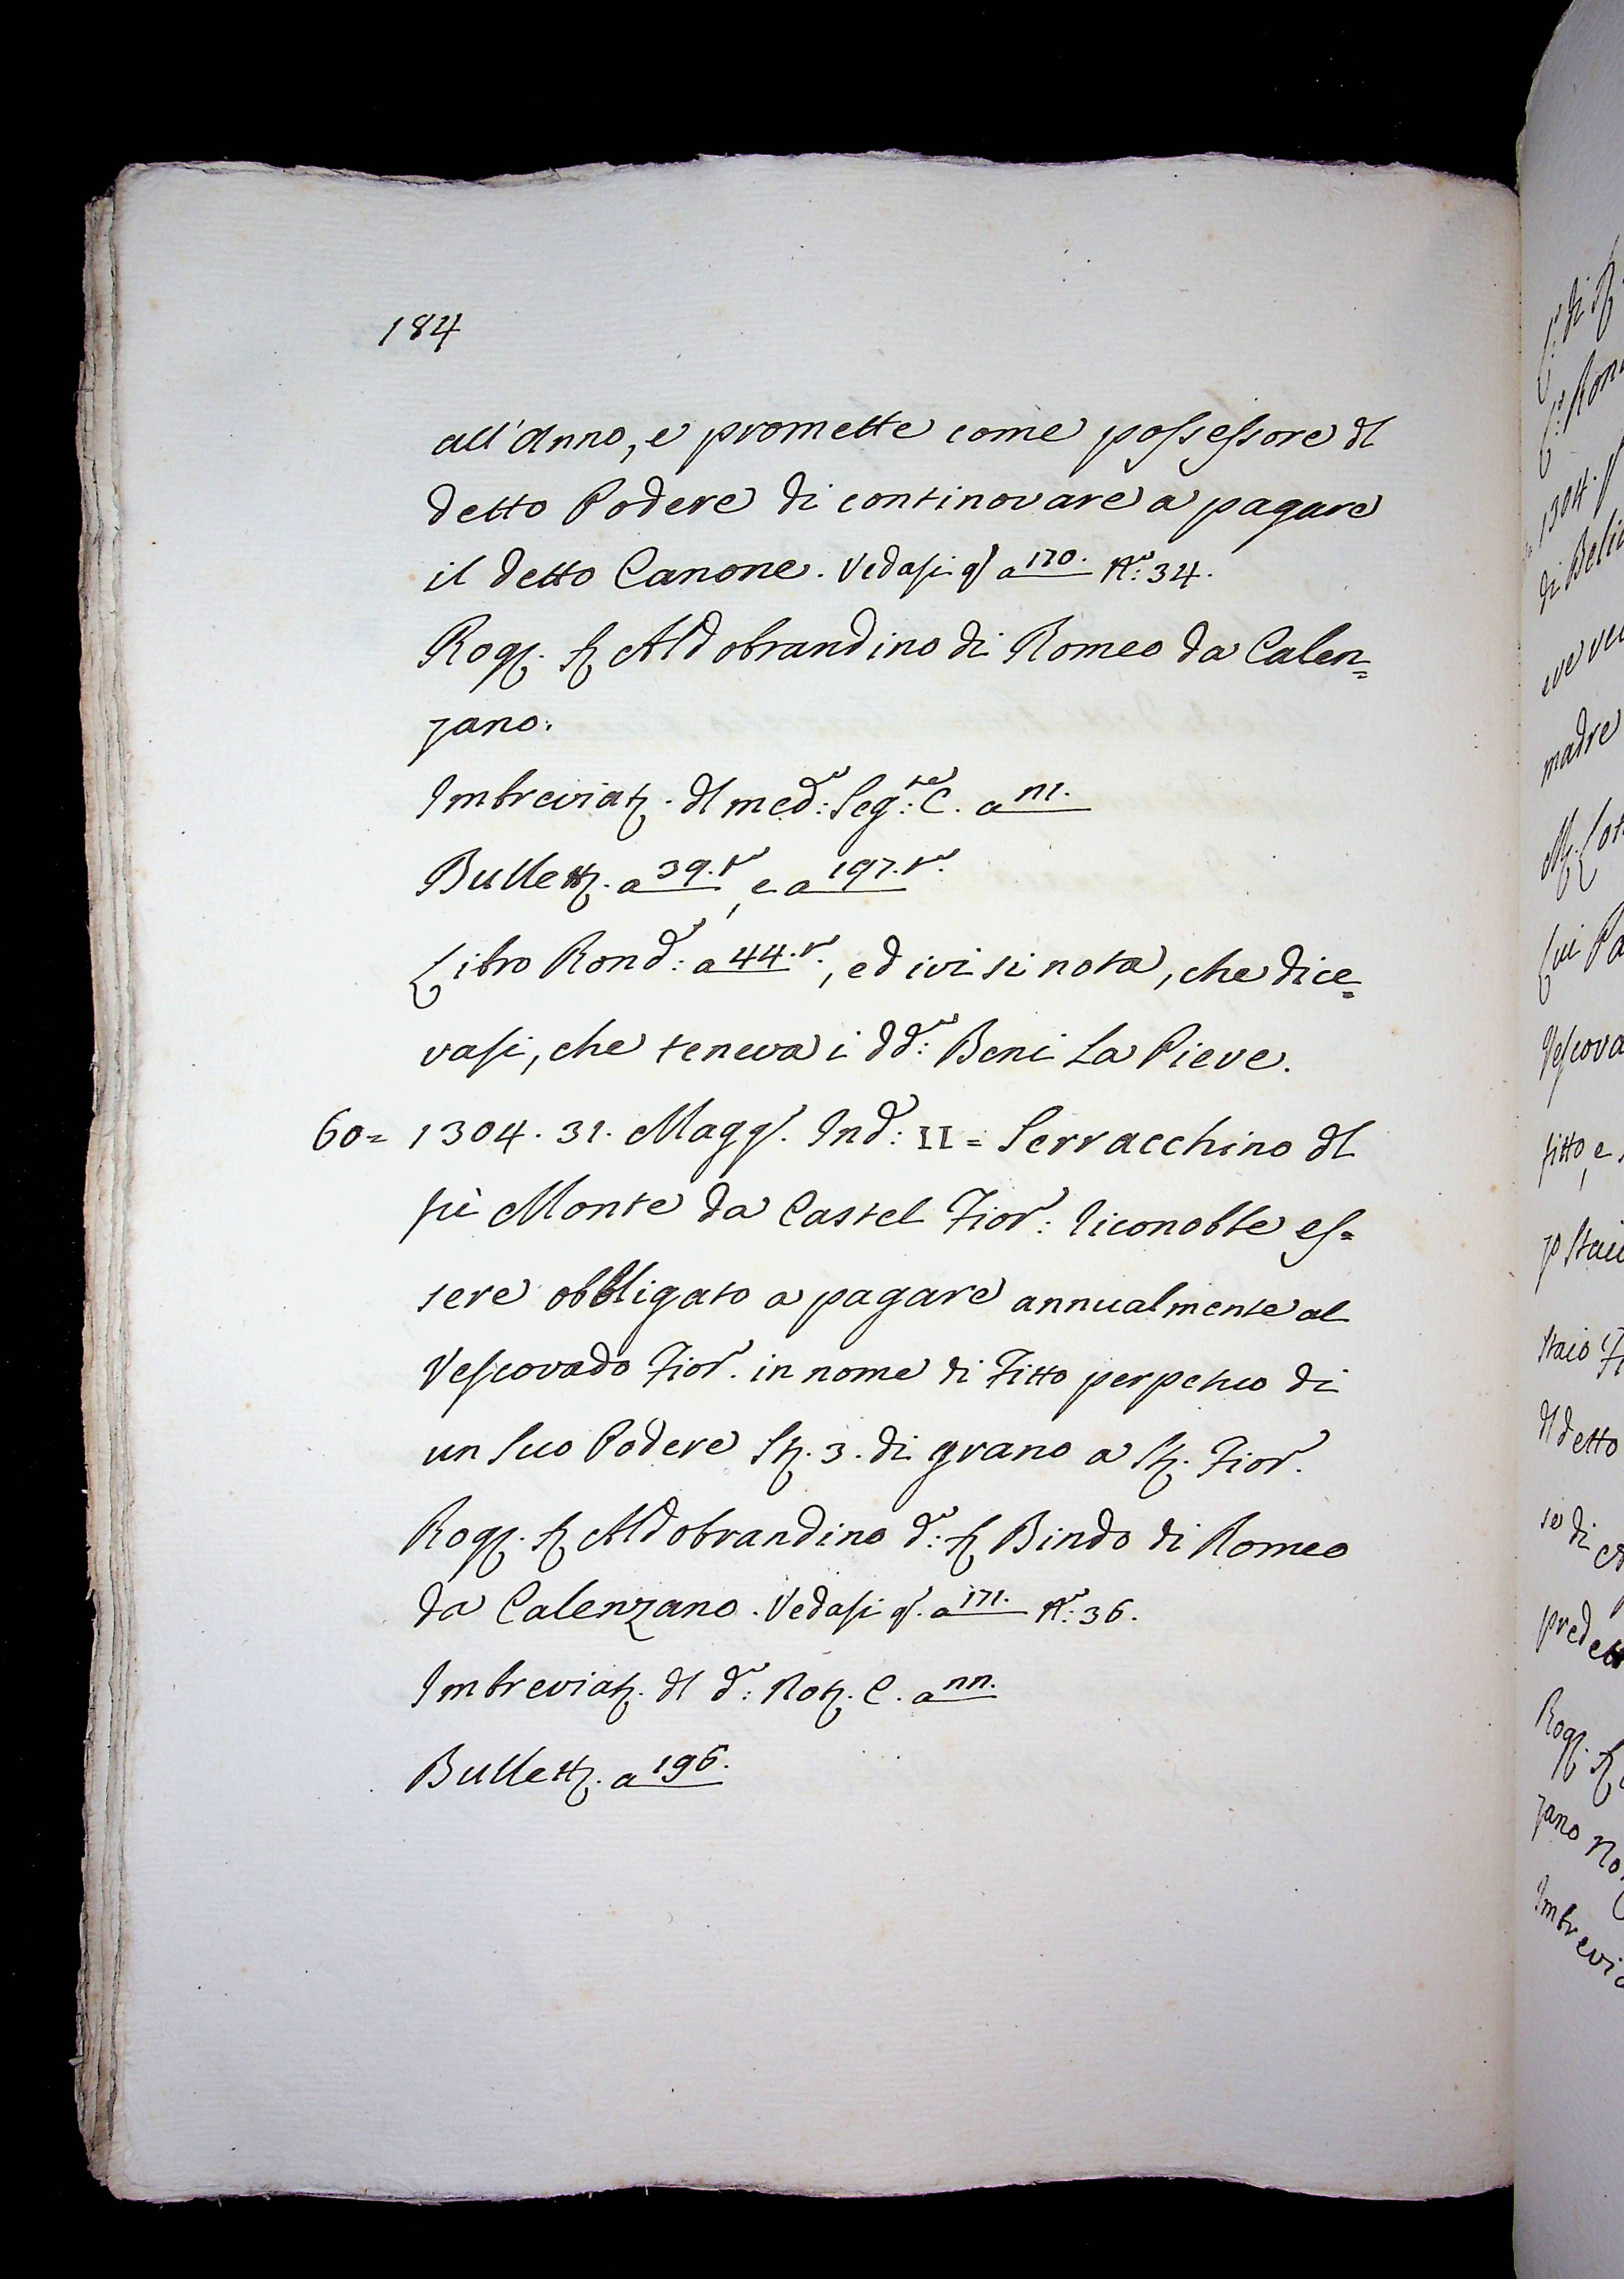 184
all'Anno, e promette come possessore dl
detto Podere di continovare a pagare
il detto Canone. Vedasi q. a 170. N.º: 34.
Rog. S. Aldobrandino di Romeo da Calen=
zano.
Imbreviaz. dl med.º: Seg.te: C. a
Bullett. a 39.to, e a 197.to.
Libro Rond.º: a 44.to., ed ivi si nota, che dice=
vasi, che teneva i dd.i: Beni La Pieve.
60= 1304. 31. Magg. Ind.: II = Serracchino dl
fù Monte da Castel Fior.: riconobbe es=
sere obbligato a pagare annualmente al
Vescovado Fior. in nome di Fitto perpetuo di
un suo Podere St. 3. di grano a St. Fior.
Rog. S. Aldobrandino d.º: S. Bindo di Romeo
da Calenzano. Vedasi q. a 171. N.º: 36.
Imbreviaz. dl d.º: Not. C. a
Bullett. a 196.
1304.
di Beli
madre
Lui Pa
Vescova
fitto, e
Staio
dl detto
se di
predett
Rog. S.
zano No
Imbrevia